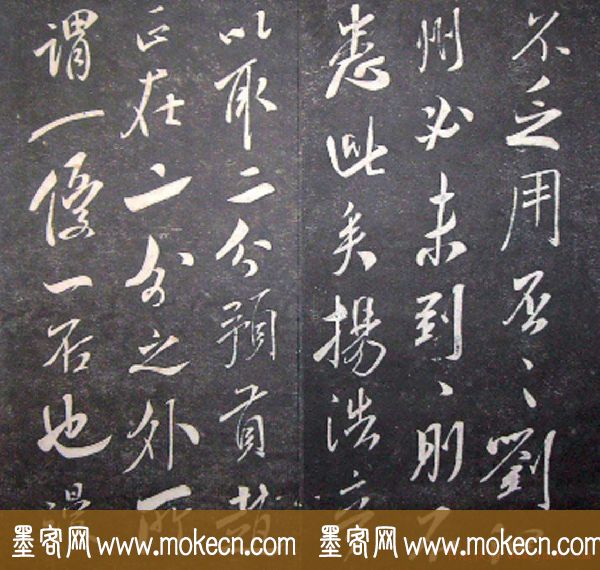 不乏用否〻劉
州必未到〻則
悉此矣揚浩
以取二分預首
正在二分之外所
謂一優一否也
墨客网 www.mokecn.com 墨客网 www.mokecn.com